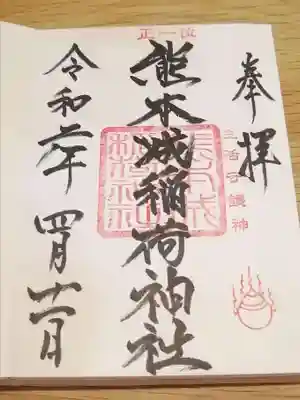 奉拝
正一位
熊本城稲荷神社
令和二年 四月十一日